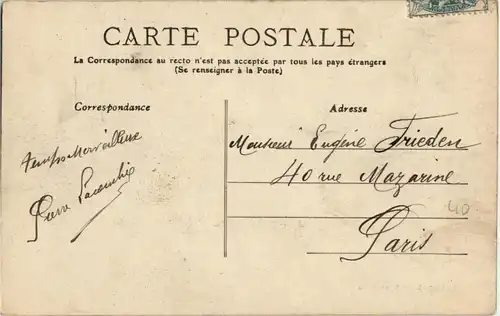 CARTE POSTALE
La Correspondance au recto n'est pas acceptée par tous les pays étrangers
(Se renseigner à la Poste)
Correspondance
Adresse
temps merveilleux
Pierre
Monsieur Eugène Frieden
40 rue Mazarine
Paris
40